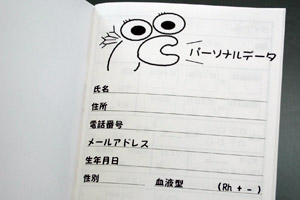 パーソナルデータ
氏名
住所
電話番号
メールアドレス
生年月日
性別 血液型 (Rh + - )